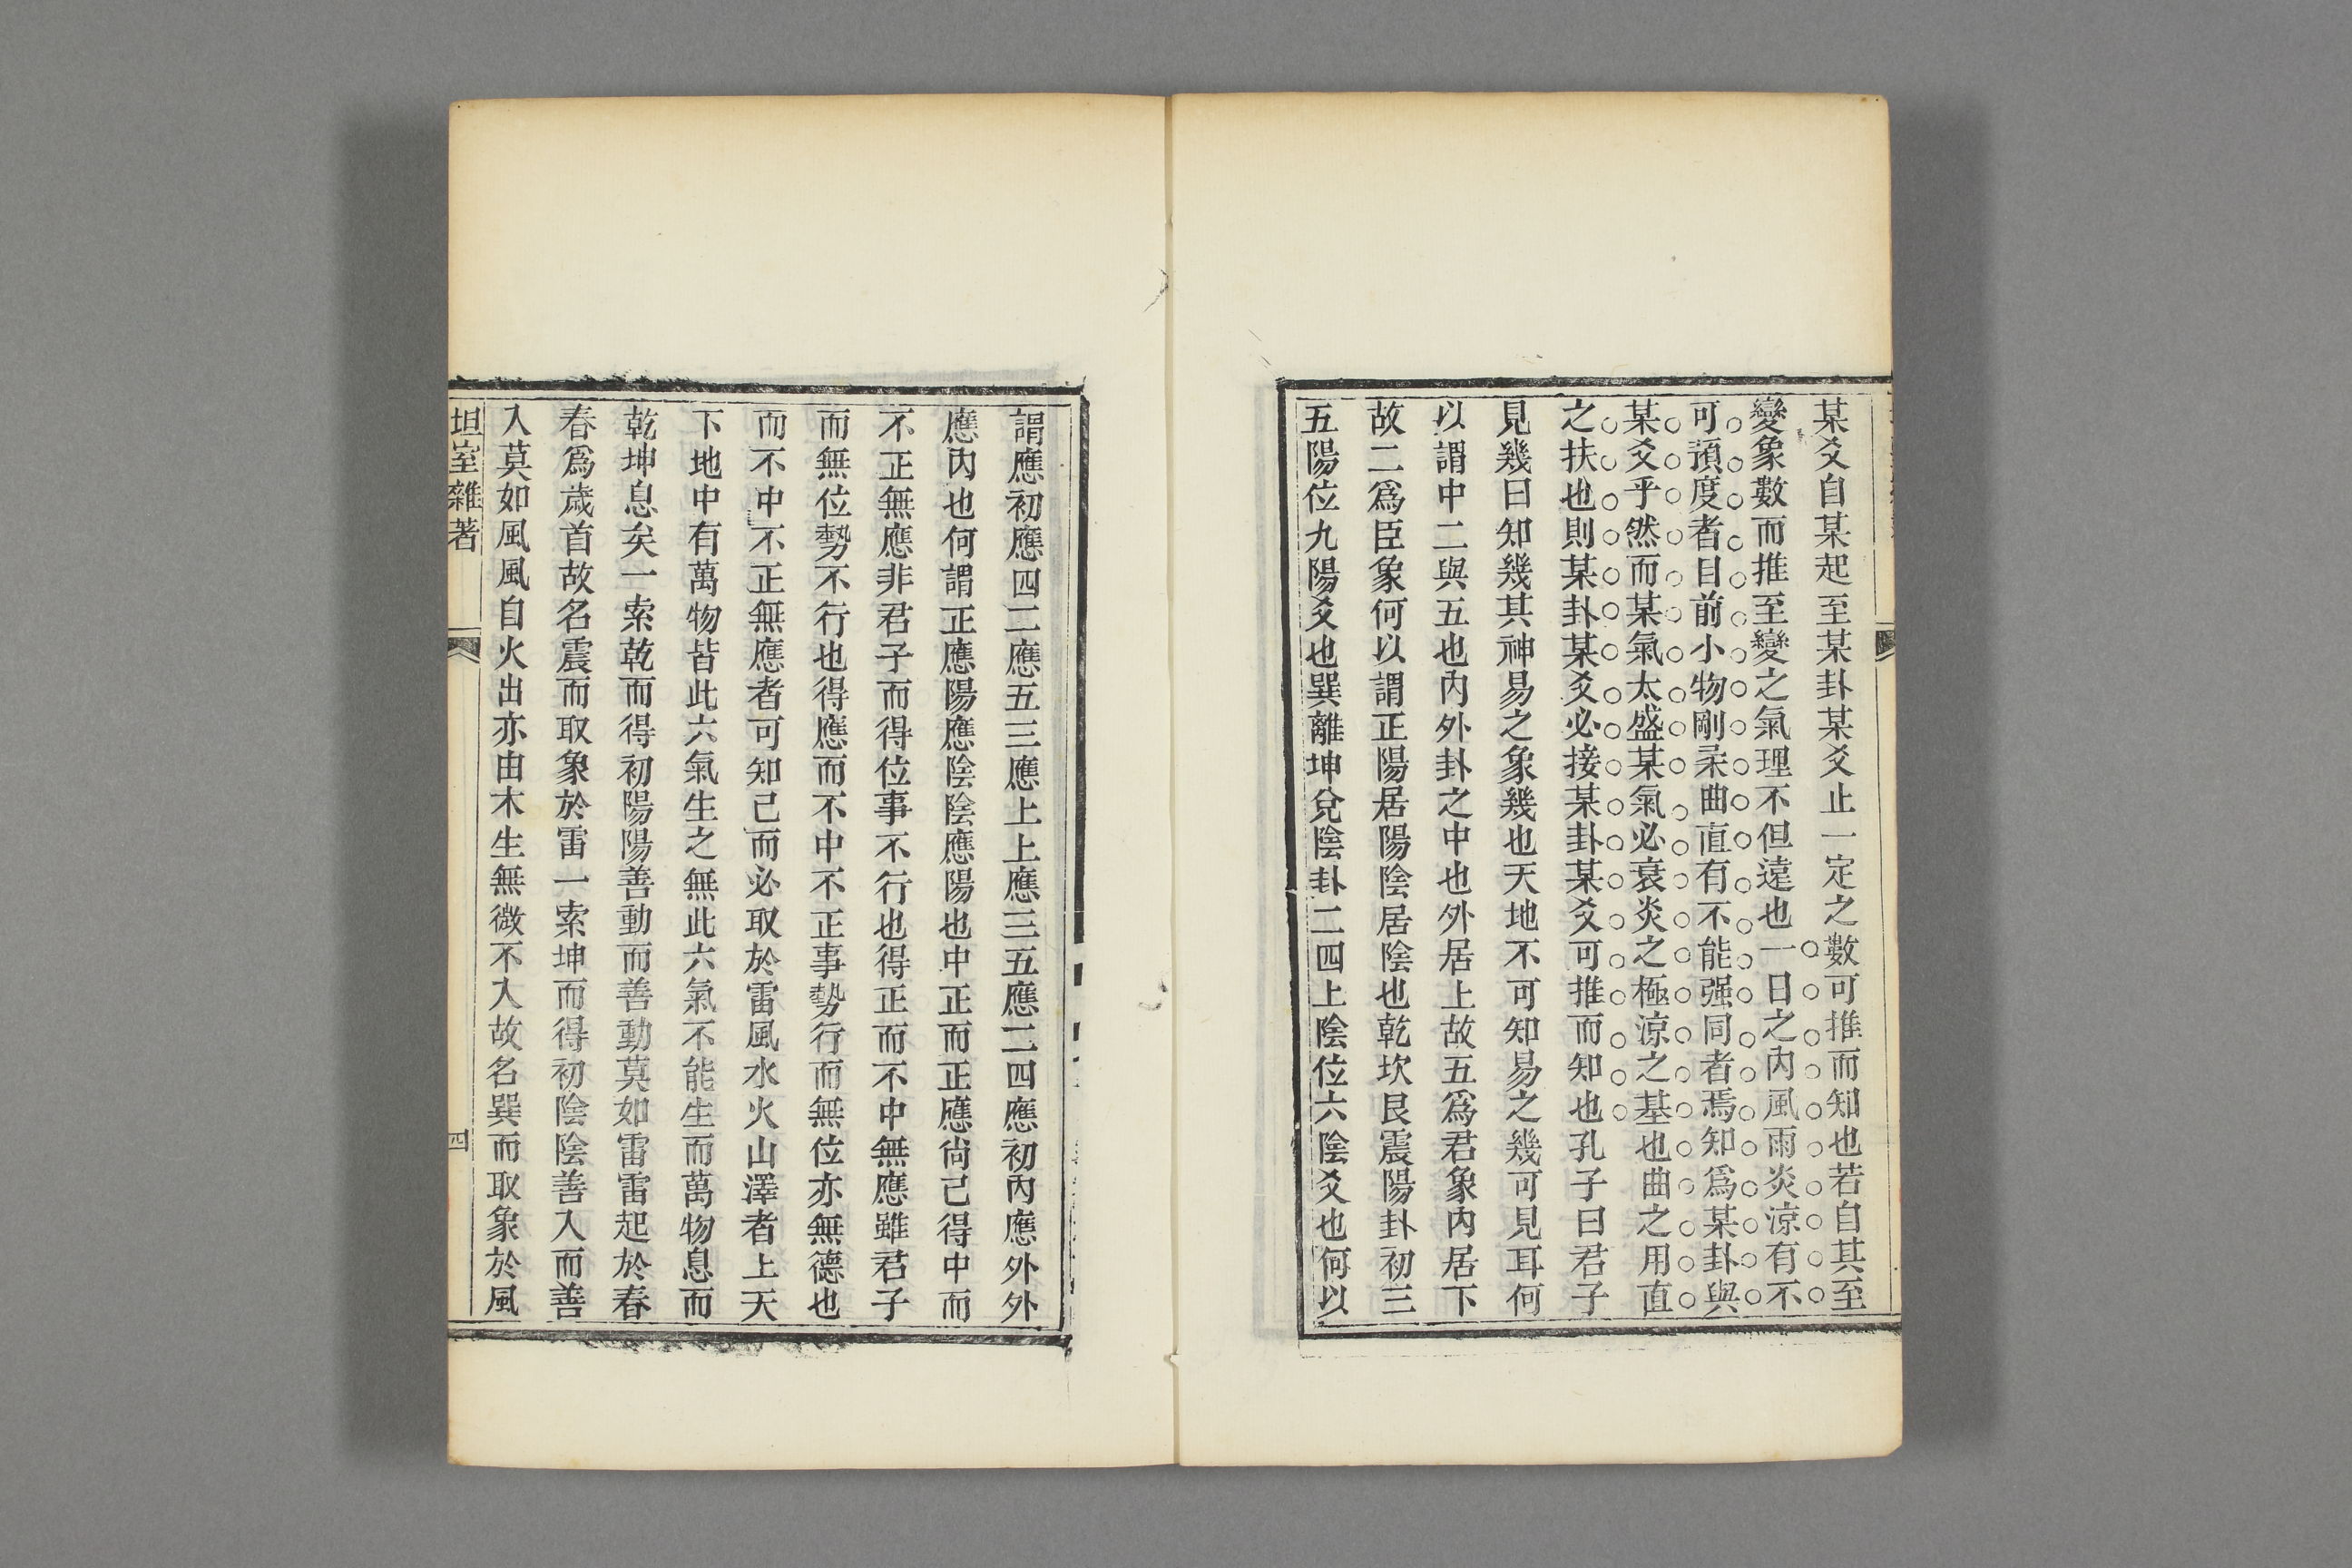 某爻自某起至某卦某爻止一定之數可推而知也若自其至
變象數而推至變之氣理不但遠也一日之內風雨炎涼有不
可預度者目前小物剛柔曲直有不能强同者焉知爲某卦與
某爻乎然而某氣太盛某氣必衰炎之極涼之基也曲之用直
之扶也則某卦某爻必接某卦某爻可推而知也孔子曰君子
見幾曰知幾其神易之象幾也天地不可知易之幾可見耳何
以謂中二與五也內外卦之中也外居上故五爲君象內居下
故二爲臣象何以謂正陽居陽陰居陰也乾坎艮震陽卦初三
五陽位九陽爻也巽離坤兌陰卦二四上陰位六陰爻也何以
謂應初應四二應五三應上上應三五應二四應初內應外外
應內也何謂正應陽應陰陰應陽也中正而正應尚己得中而
不正無應非君子而得位事不行也得正而不中無應雖君子
而無位勢不行也得應而不中不正事勢行而無位亦無德也
而不中不正無應者可知己而必取於雷風水火山澤者上天
下地中有萬物皆此六氣生之無此六氣不能生而萬物息而
乾坤息矣一索乾而得初陽陽善動而善動莫如雷雷起於春
春爲歲首故名震而取象於雷一索坤而得初陰陰善入而善
入莫如風風自火出亦由木生無微不入故名巽而取象於風
坦室雜著
四